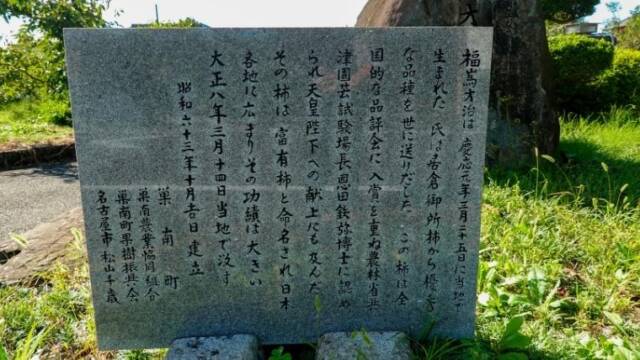 福嶌才治は 慶応元年三月二十五日に当地で
生まれた 氏は居倉御所柿から優秀
な品種を世に送りだした この柿は全
国的な品評会に入賞を重ね農林省興
津園芸試験場長恩田鉄弥博士に認め
られ天皇陛下への献上にも及んだ
その柿は 富有柿と命名され 日本
各地に広まりその功績は大きい
大正八年三月十四日当地で没す
昭和六十三年十月吉日 建立
巣南町
巣南農業協同組合
巣南町果樹振興会
名古屋市 松山千歳
大